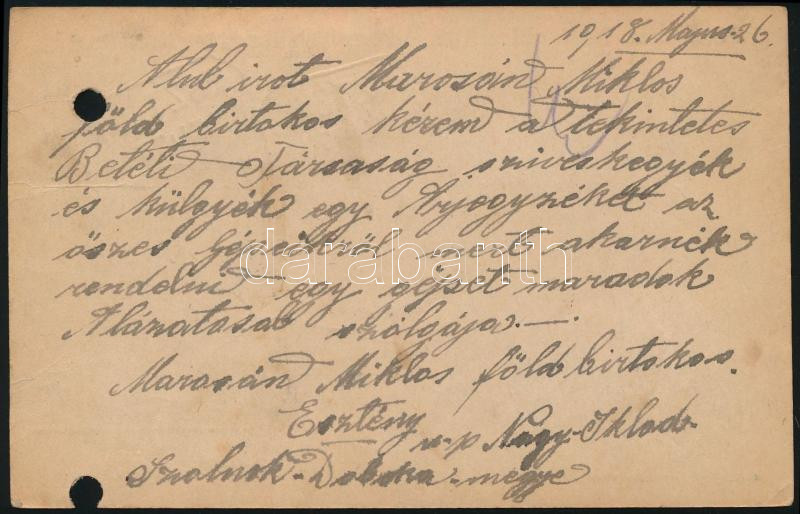 1918. Majus 26.
Alul irot Marosán Miklos
föld birtokos kérem a Tekintetes
Betéti Társaság sziveskegyék
és külgyék egy Árjegyzéket az
öszes Gépeiktröl mert akarnék
rendelni egy gépet maradok
Alázatosab szolgája.—.
Marosán Miklos föld birtokos.
Esztény
u-p Nagy-Iklod-
Szolnok-Doboka-megye
darabanth